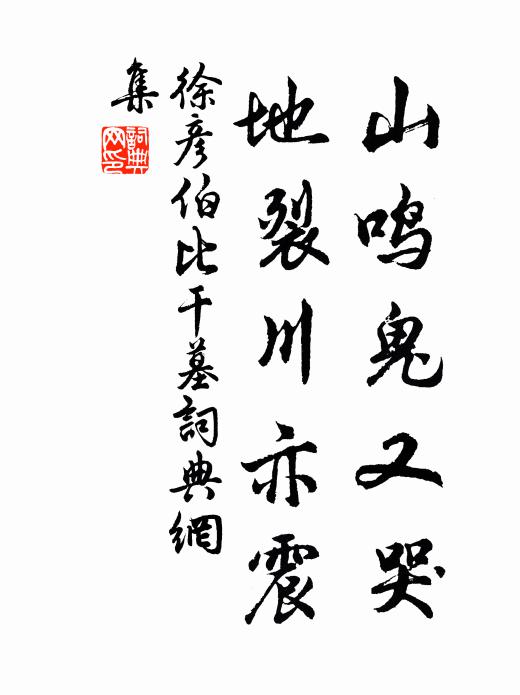 山鸣鬼又哭
地裂川亦震
徐彦伯比干墓詞典網
集
詞典
网印